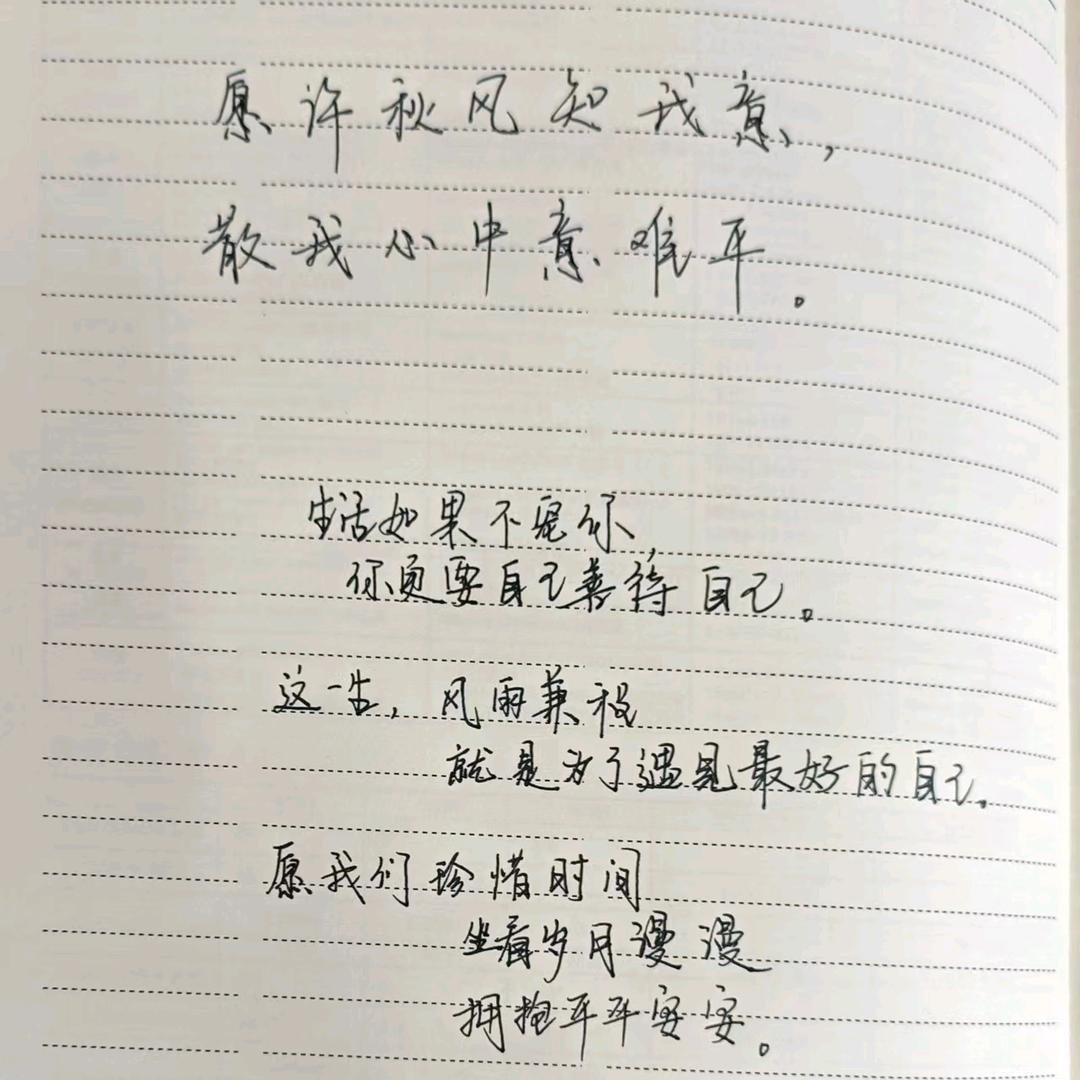 愿许秋风知我意，
散我心中意难平。
生活如果不宠你，
你更要自己善待自己。
这一生，风雨兼程
就是为了遇见最好的自己。
愿我们珍惜时间
坐看岁月漫漫
拥抱平平安安。